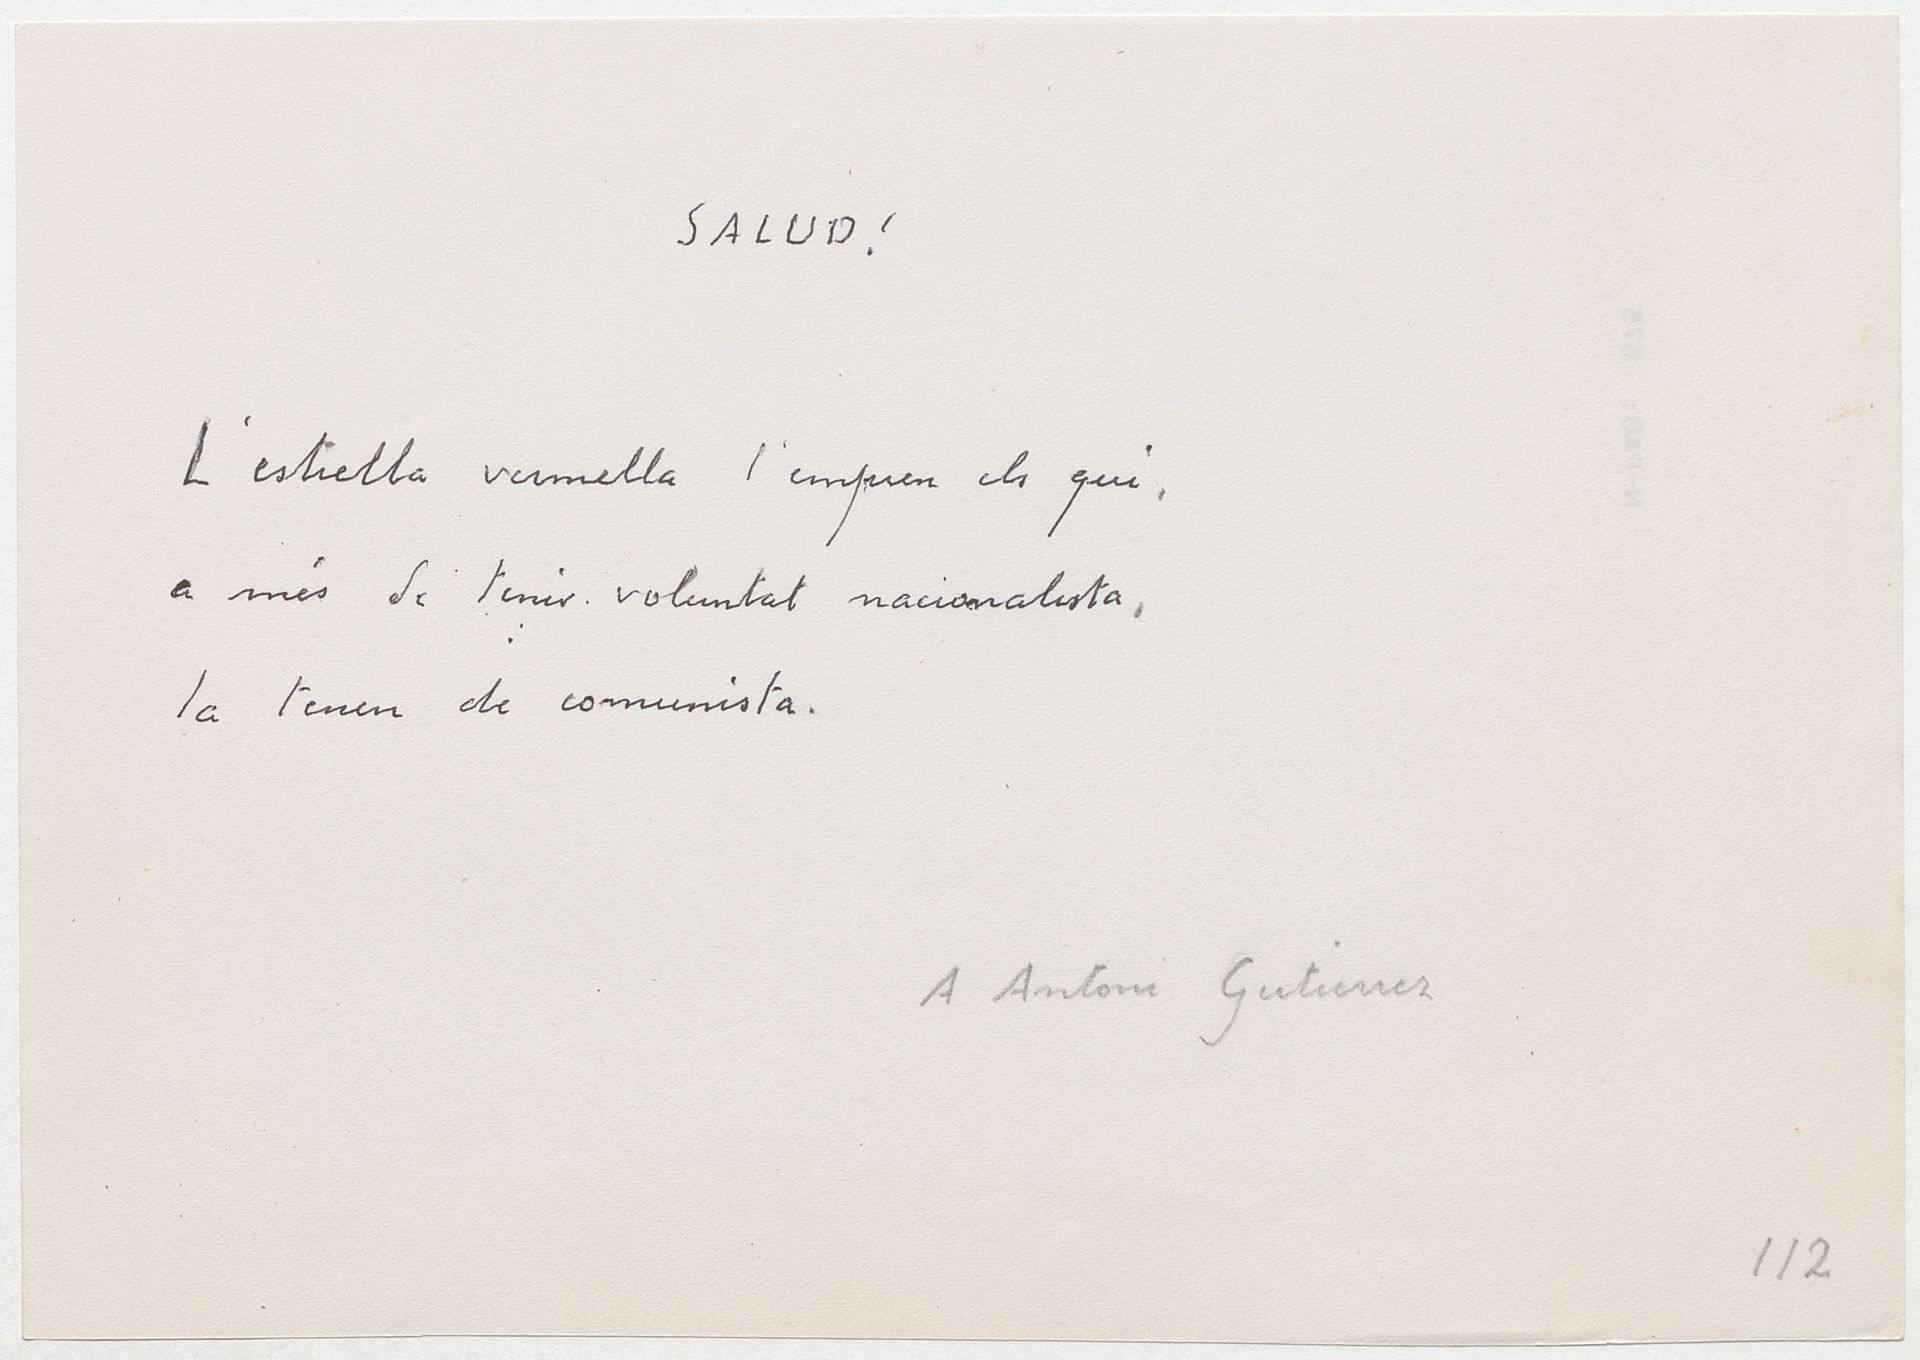 SALUD!
L'estrella vermella l'empren els qui,
a més de tenir voluntat nacionalista,
la tenen de comunista.
A Antoni Gutierrez
112